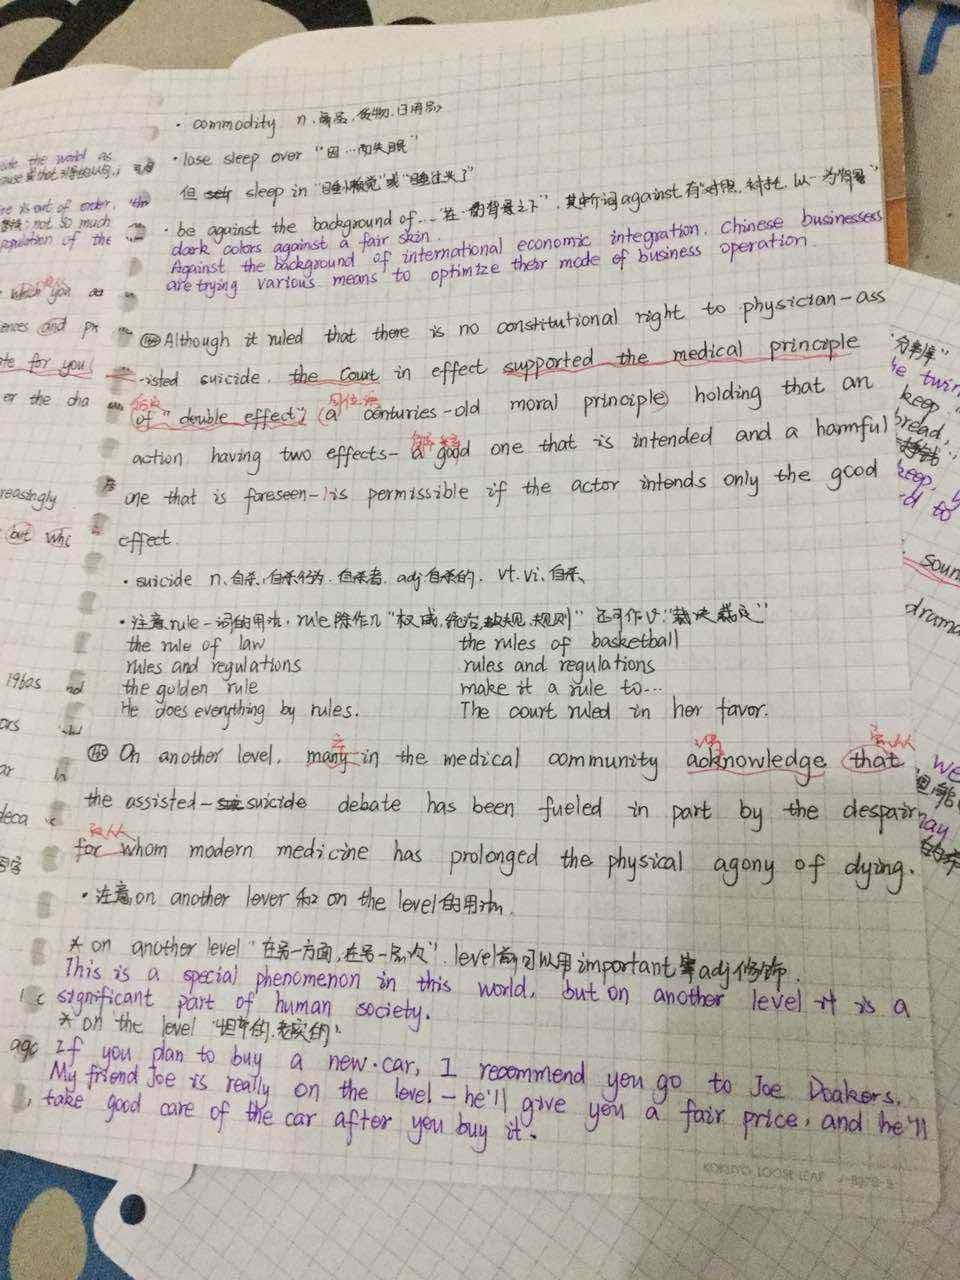 · commodity n. 商品. 货物. 日用品
· lose sleep over "因…而失眠"
但 sleep in "睡懒觉"或"睡过头了"
· be against the background of… "在…的背景之下", 其中介词against有"对照, 衬托, 以…为背景"
dark colors against a fair skin.
Against the background of international economic integration. Chinese businesses
are trying various means to optimize their mode of business operation.
Although it ruled that there is no constitutional right to physician-ass
-isted suicide. the Court in effect supported the medical principle
同位语
of "double effect", (a centuries-old moral principle) holding that an
action having two effects- a good one that is intended and a harmful
one that is foreseen- is permissible if the actor intends only the good
effect.
· suicide n. 自杀, 自杀行为. 自杀者. adj 自杀的. vt. vi. 自杀.
· 注意rule一词的用法, rule 除作n "权威, 统治, 规则" 还可作v "裁决裁定"
the rule of law the rules of basketball
rules and regulations rules and regulations
the golden rule make it a rule to…
He does everything by rules. The court ruled in her favor.
主 谓 宾从
On another level, many in the medical community acknowledge that
the assisted-suicide debate has been fueled in part by the despair
for whom modern medicine has prolonged the physical agony of dying.
· 注意on another lever 和 on the level的用法.
* on another level "在另一方面, 在另一层次". level前可以用important等adj修饰.
This is a special phenomenon in this world, but on another level it is a
significant part of human society.
* on the level "坦率的, 老实的"
If you plan to buy a new car, I recommend you go to Joe Doakers.
My friend Joe is really on the level - he'll give you a fair price, and he'll
take good care of the car after you buy it.
the world as
is out of order,
not so much
population of the
which you
and
for you
er the cha
reasingly
but
1960s
ago
keep
bread,
keep,
sound
drama